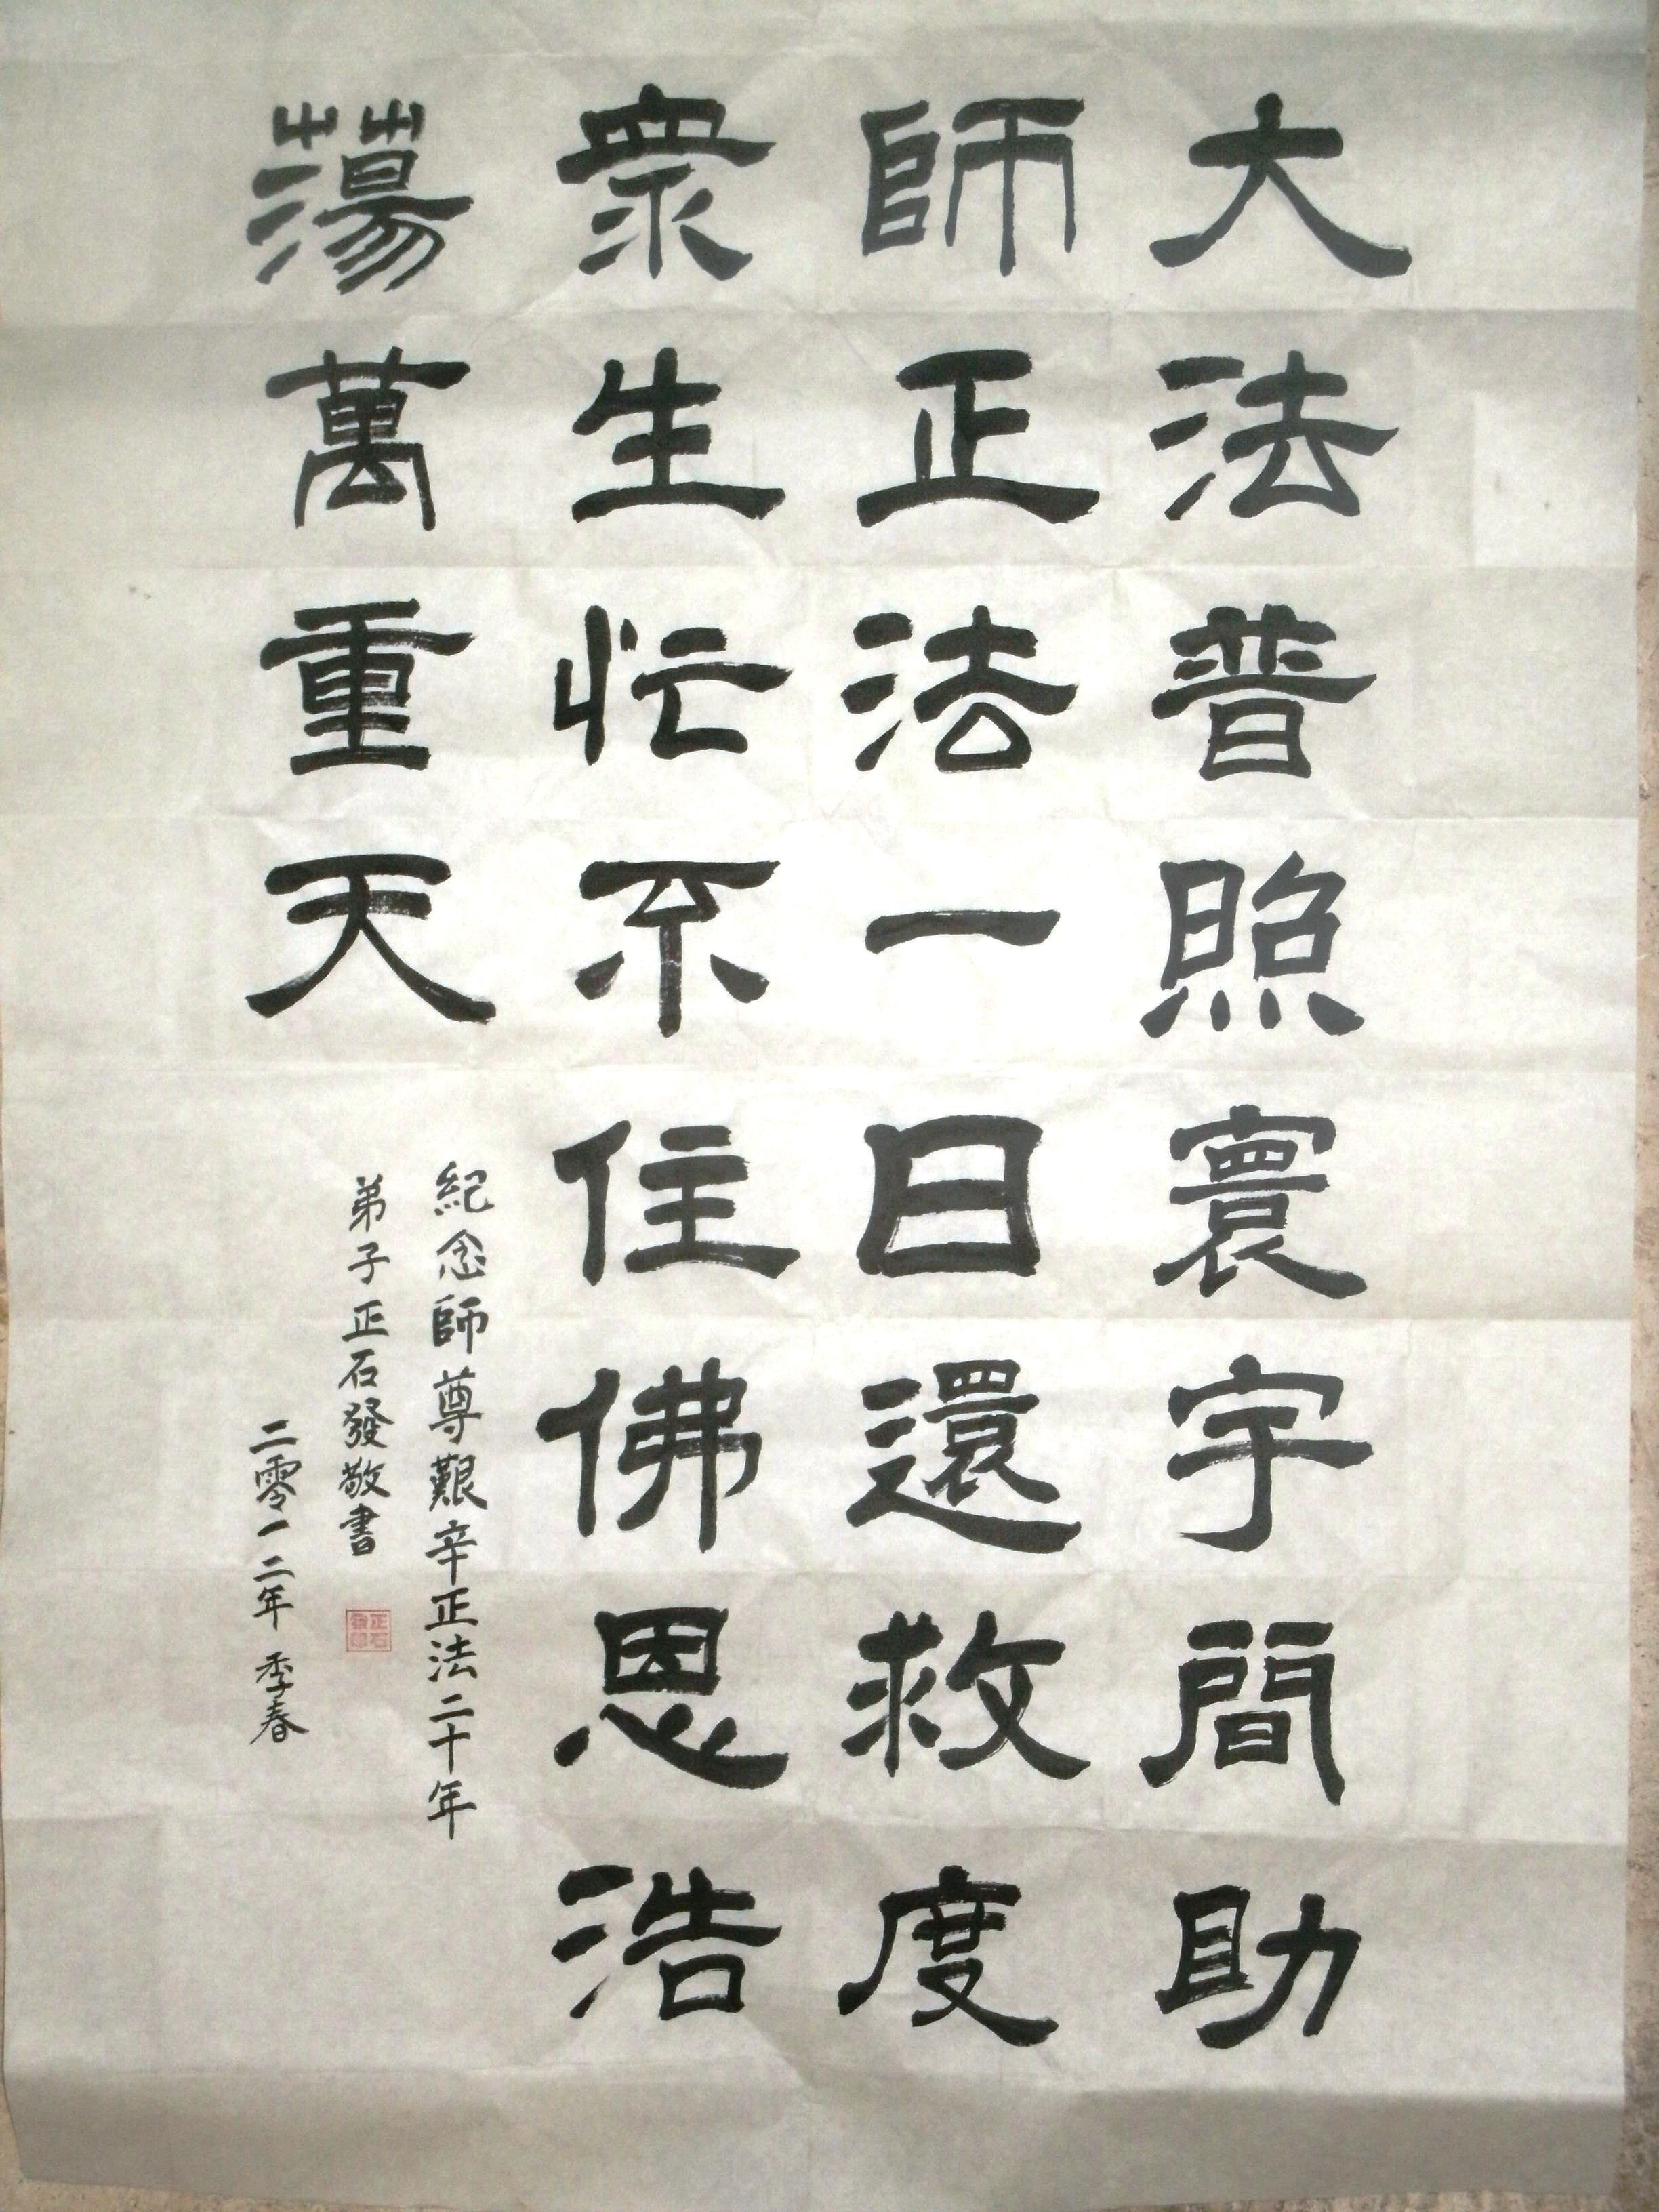 大法普照寰宇間助
師正法一日還救度
衆生忙不住佛恩浩
蕩萬重天
紀念師尊艱辛正法二十年
弟子正石發敬書
二零一二年 季春
正石